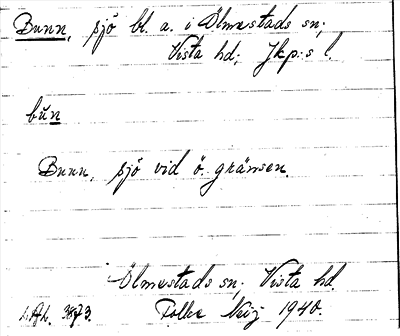 Bunn, sjö bl. a. i Ölmestads sn;
Vista hd; Jkp:s l.
bŭn
Bunn, sjö vid ö. gränsen.
Ölmestads sn; Vista hd.
Folke 1940.